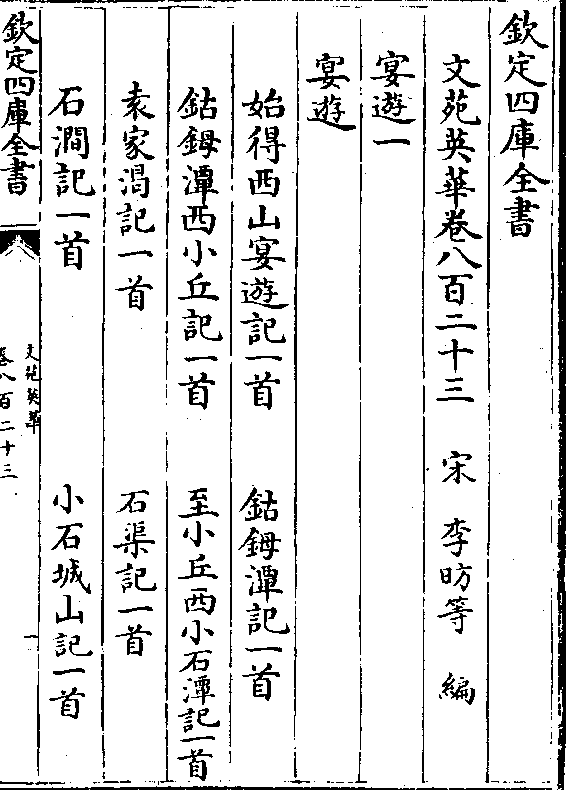 欽定四庫全書
文苑英華卷八百二十三　宋　李昉等　編
宴遊一
宴遊
始得西山宴遊記一首　鈷鉧潭記一首
鈷鉧潭西小丘記一首　至小丘西小石潭記一首
袁家渴記一首　石渠記一首
石澗記一首　小石城山記一首
欽定四庫全書
文苑英華
卷八百二十三
一